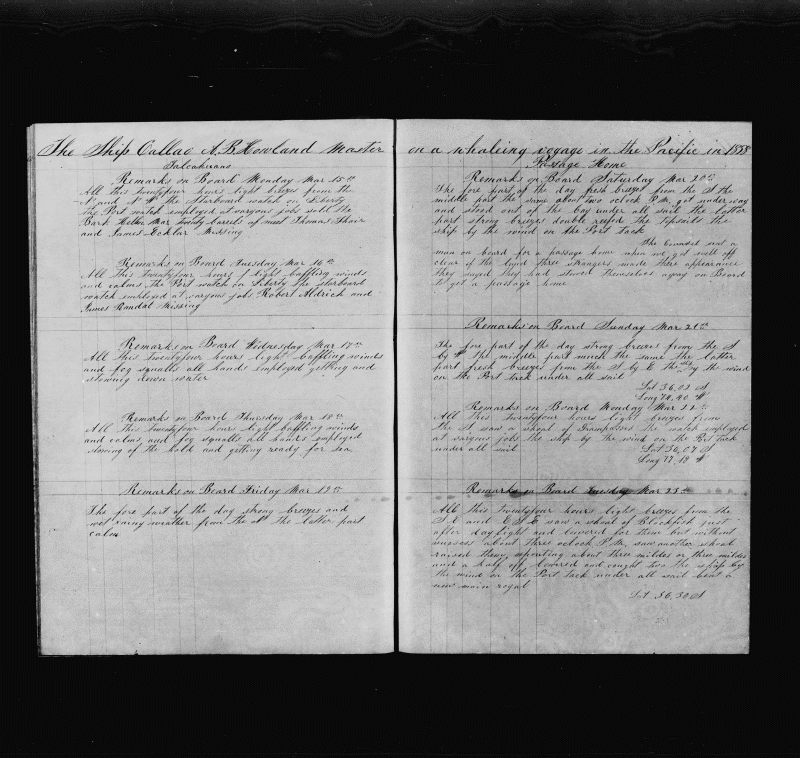 The Ship Callao A. B. Howland Master
Talcahuano
Remarks on Board Monday Mar 15th
All this twentyfour hours light breezes from the
N and N W the Starboard watch on Liberty
the Port watch employed at varyous jobs sold the
Bark Mar twenty barrels of meat Thomas
and James Missing
Remarks on Board Tuesday Mar 16th
All This Twentyfour hours light baffling winds
and calms the Port watch on Liberty the starboard
watch employed at varyous jobs Robert Aldrich and
James Randal Missing
Remarks on Board Wednesday Mar 17th
All this twentyfour hours light baffling winds
and fog squalls all hands employed getting and
stowing down water
Remarks on Board Thursday Mar 18th
All this twentyfour hours light baffling winds
and calms and fog squalls all hands employed
stowing of the hold and getting ready for sea
Remarks on Board Friday Mar 19th
The fore part of the day strong breezes and
wet rainy weather from the N the latter part
calm
on a whaleing voyage in the Pacific in 1858
Passage Home
Remarks on Board Saturday Mar 20th
The fore part of the day fresh breezes from the S the
middle part the same about two oclock P.M. got under way
and stood out of the bay under all sail the latter
part strong breezes double reefed the topsails the
ship by the wind on the Port Tack
The counsel sent a
man on board for a passage home when we got well off
clear of the land three strangers made there appearance
they sayed they had stowed themselves away on Board
to get a passage home
Remarks on Board Sunday Mar 21st
The fore part of the day strong breezes from the S
by W the middle part much the same the latter
part fresh breezes from the S by E the ship by the wind
on the Port Tack under all sail
Lat 36,03 S
Long 74,40 W
Remarks on Board Monday Mar 22
All this twentyfour hours light breezes from
the S saw a shoal of Grampusses the watch employed
at varyous jobs the ship by the wind on the Port Tack
under all sail
Lat 36,07 S
Long 77,19 W
Remarks on Board Tuesday Mar 23rd
All this twentyfour hours light breezes from the
S.E and E.S.E saw a shoal of Blackfish just
after daylight and lowered for them but without
success about three oclock P.M. saw another shoal
raised them spouting about three miles or three miles
and a half off lowered and caught two the ship by
the wind on the Port Tack under all sail bent a
new main royal
Lat 36,30 S